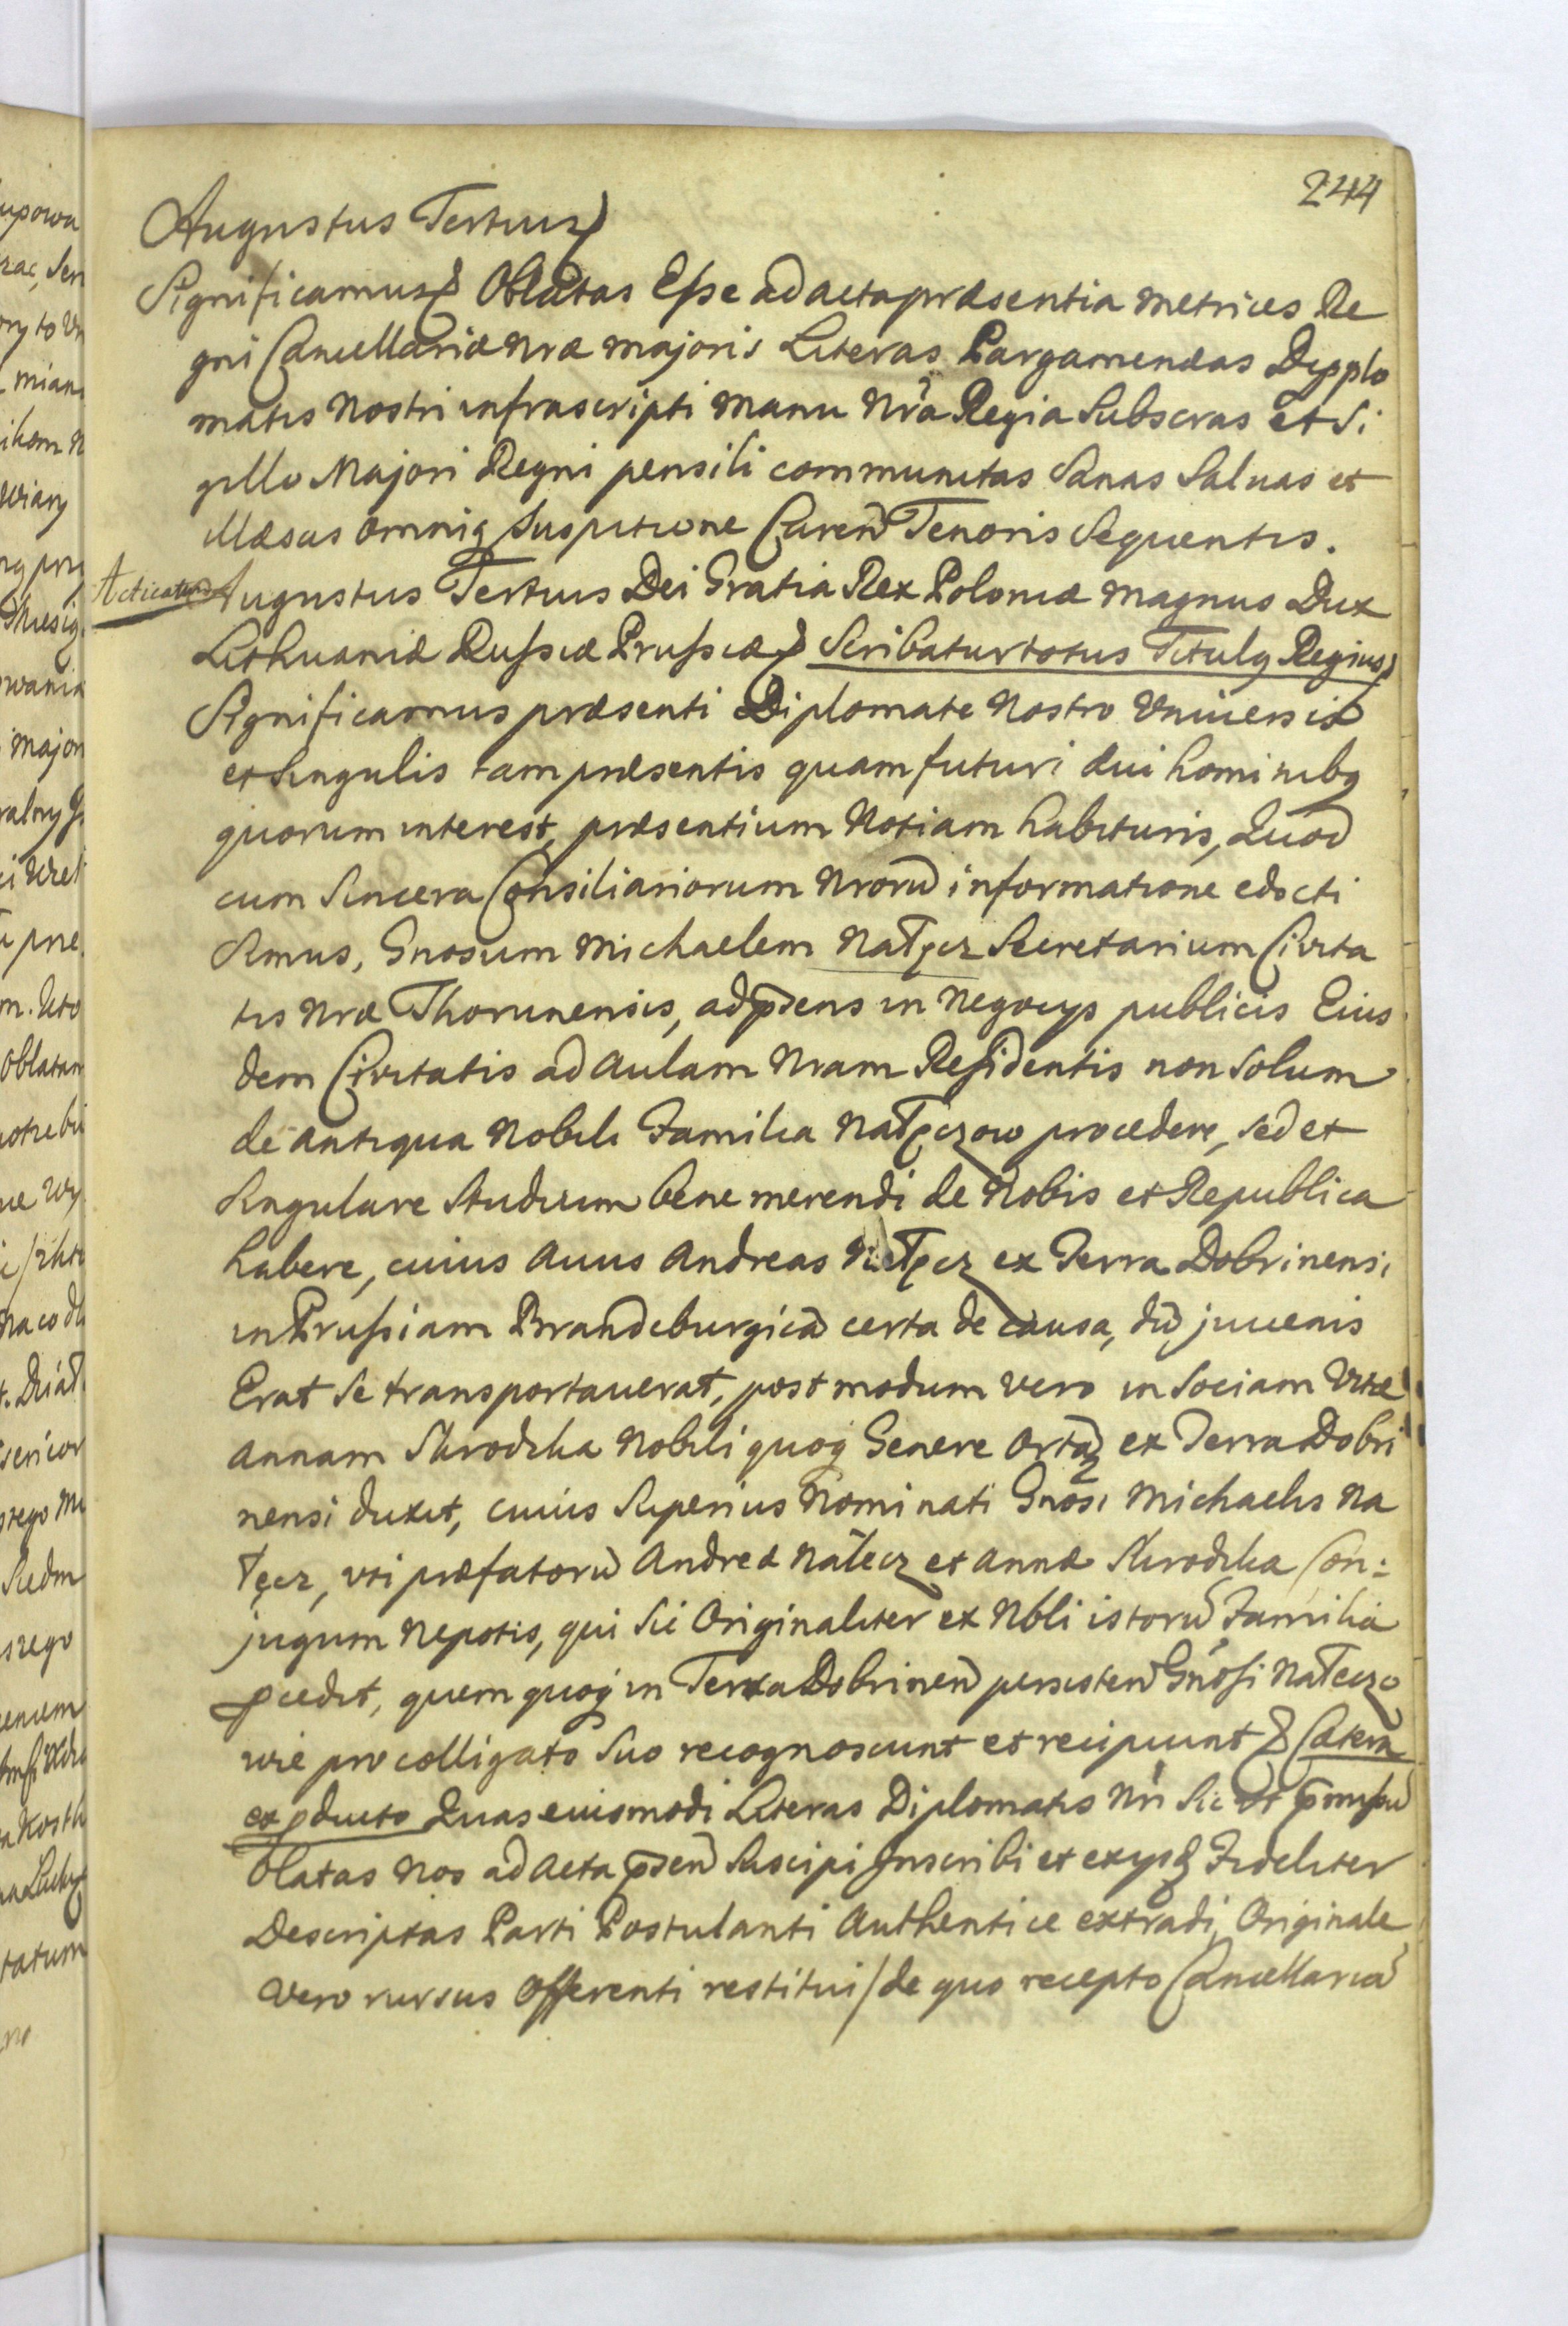 244
Augustus Tertius
Significamus Oblatas Esse ad acta præsentia metrices Re
gni Cancellariæ nræ majoris Literas Pargameneas Dypplo
matis nostri infrascripti manu nra Regia Subscras et Si
gillo Majori Regni pensili communitas Sanas Saluas et
illæsas omniq suspitione Caren Tenoris Sequentis.
Acticatio Augustus Tertius Dei Gratia Rex Poloniæ magnus Dux
Lithuaniæ Russiæ Prussiæ Scribatur totus Titulq Regius
Significamus præsenti Diplomate nostro Vniuersis
et singulis tam præsentis quam futuri æui hominibq
quorum interest, præsentium Notiam habituris, Quod
cum Sincera Consiliariorum nroru informatione edocti
simus, Gnosum Michaelem Natęcz Secretarium Civita
tis nræ Thorunensis, ad psens in negocys publicis Eius
dem Civitatis ad aulam nram Residentis non solum
de antiqua nobili Familia Natęczow procedere, sed et
singulare studium bene merendi de nobis et Republica
habere, cuius auus Andreas Natęcz ex Terra Dobrinensi
in Prussiam Brandeburgica certa de causa, du juuenis
Erat se transportauerat, post modum vero in sociam vitæ
annam Skrodzka nobili quoq Genere orta ex Terra Dobri
nensi duxit, cuius superius nominati Gnosi Michaelis Na
tęcz, vti præfatoru Andreæ Natęcz et annæ Skrodzka Con:
jugum nepotis, qui sic Originaliter ex Nbli istoru Familia
pcedit, quem quoq in Terra Dobrinen persisten Gnosi Natęczo
wie pro colligato suo recognoscunt et recipiunt Cætera
ex pducto Quas eiusmodi Literas Diplomatis nri sic vt pmissu
Oblatas nos ad acta psen suscipi Inscribi et exysq Fideliter
Descriptas Parti Postulanti Authentice extradi, Originale
vero rursus offerenti restitui / de quo recepto Cancellaria